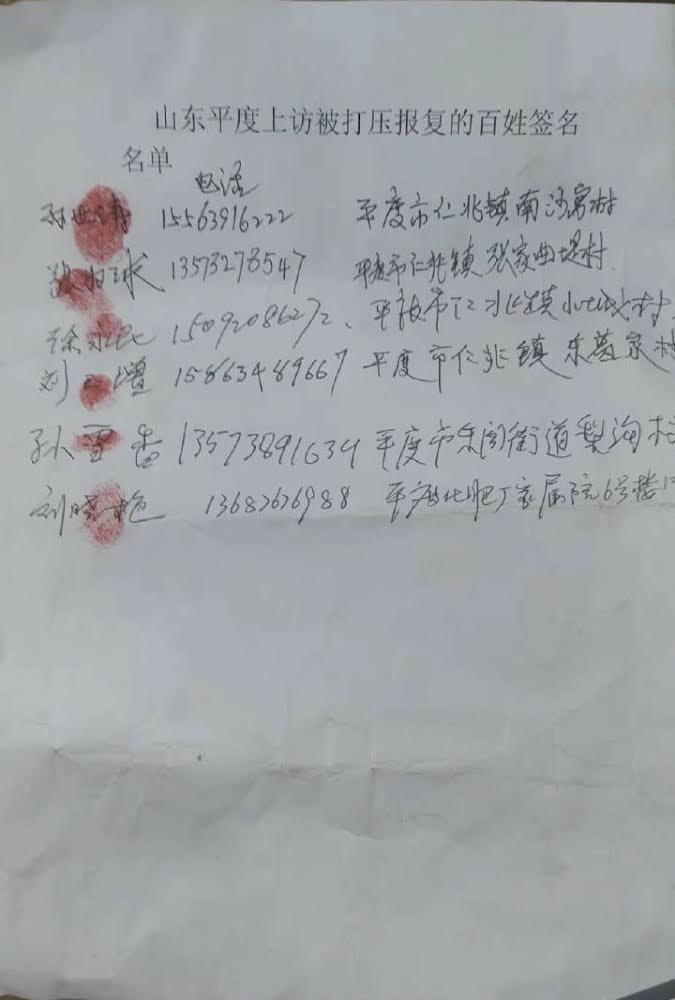 山东平度上访被打压报复的百姓签名
名单
电话
孙 15563916222 平度市仁兆镇南沙窝村
张 球 13573278547 平度市仁兆镇张家曲堤村
徐永民 15092086272、平度市仁兆镇 村
刘 增 15863489667 平度市仁兆镇东葛家村
孙雪香 13573891634 平度市东阁街道梨沟村
刘晓艳 13682636988 平度化肥厂家属院6号楼